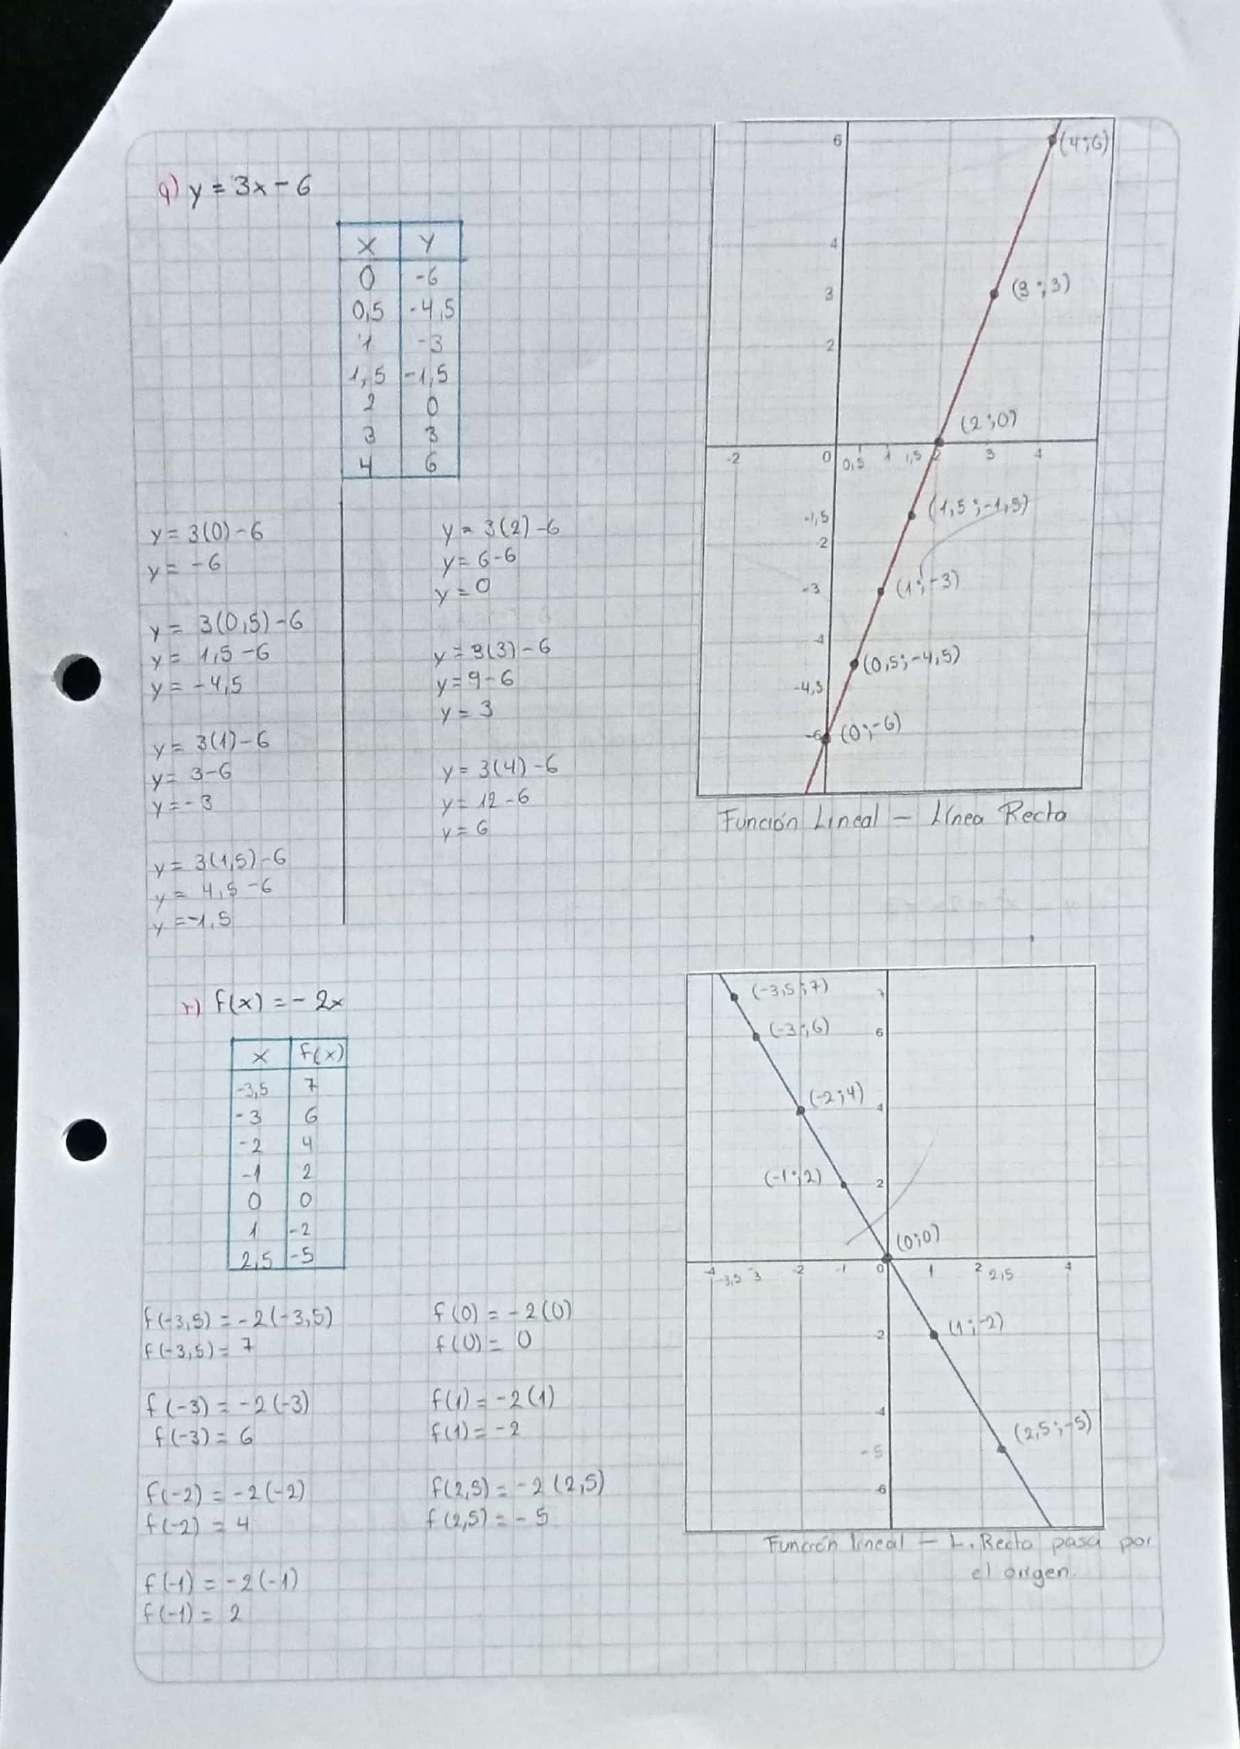 q) y = 3x - 6
X Y
0 -6
0,5 -4,5
1 -3
1,5 -1,5
2 0
3 3
4 6
y = 3(0) - 6
y = -6
y = 3(0,5) - 6
y = 1,5 - 6
y = -4,5
y = 3(1) - 6
y = 3 - 6
y = -3
y = 3(1,5) - 6
y = 4,5 - 6
y = -1,5
y = 3(2) - 6
y = 6 - 6
y = 0
y = 3(3) - 6
y = 9 - 6
y = 3
y = 3(4) - 6
y = 12 - 6
y = 6
6 (4;6)
4
3 (3;3)
2
(2;0)
-2 0 0,5 1 1,5 2 3 4
-1,5 (1,5;-1,5)
-2
-3 (1;-3)
-4 (0,5;-4,5)
-4,5
-6 (0;-6)
Función Lineal - Línea Recta
r) f(x) = -2x
x f(x)
-3,5 7
-3 6
-2 4
-1 2
0 0
1 -2
2,5 -5
f(-3,5) = -2(-3,5)
f(-3,5) = 7
f(-3) = -2(-3)
f(-3) = 6
f(-2) = -2(-2)
f(-2) = 4
f(-1) = -2(-1)
f(-1) = 2
f(0) = -2(0)
f(0) = 0
f(1) = -2(1)
f(1) = -2
f(2,5) = -2(2,5)
f(2,5) = -5
(-3,5;7) 7
(-3;6) 6
(-2;4) 4
(-1;2) 2
(0;0)
-4 -3,5 -3 -2 -1 0 1 2 2,5 4
-2 (1;-2)
-4
(2,5;-5)
-5
-6
Función lineal - L. Recta pasa por
el origen